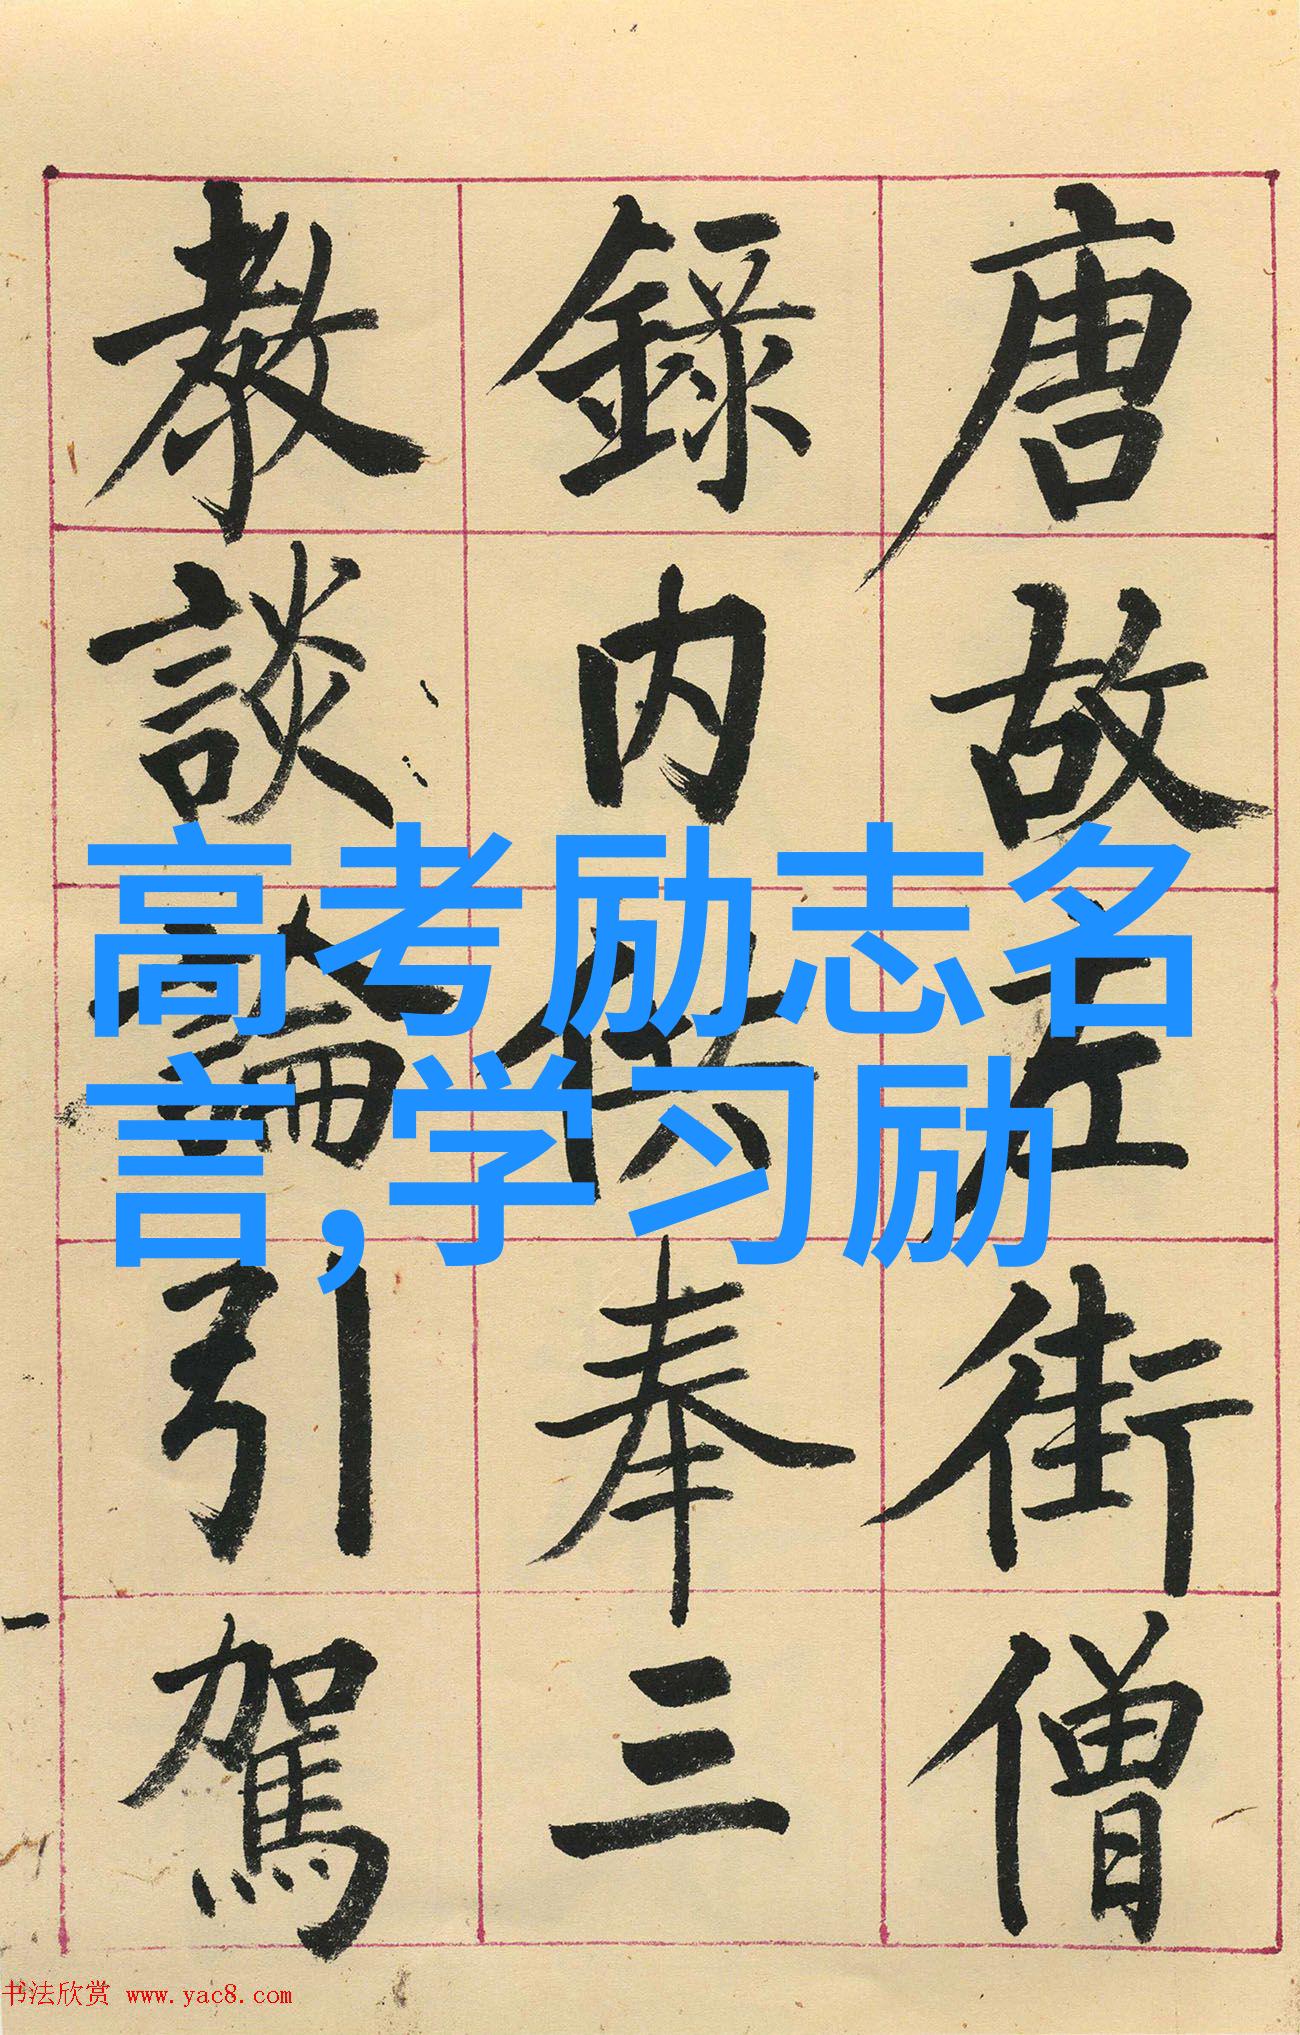 唐故左街僧
録内供奉三
教談論引駕
高考励志名
言,学习励
书法欣赏 www.yac8.com